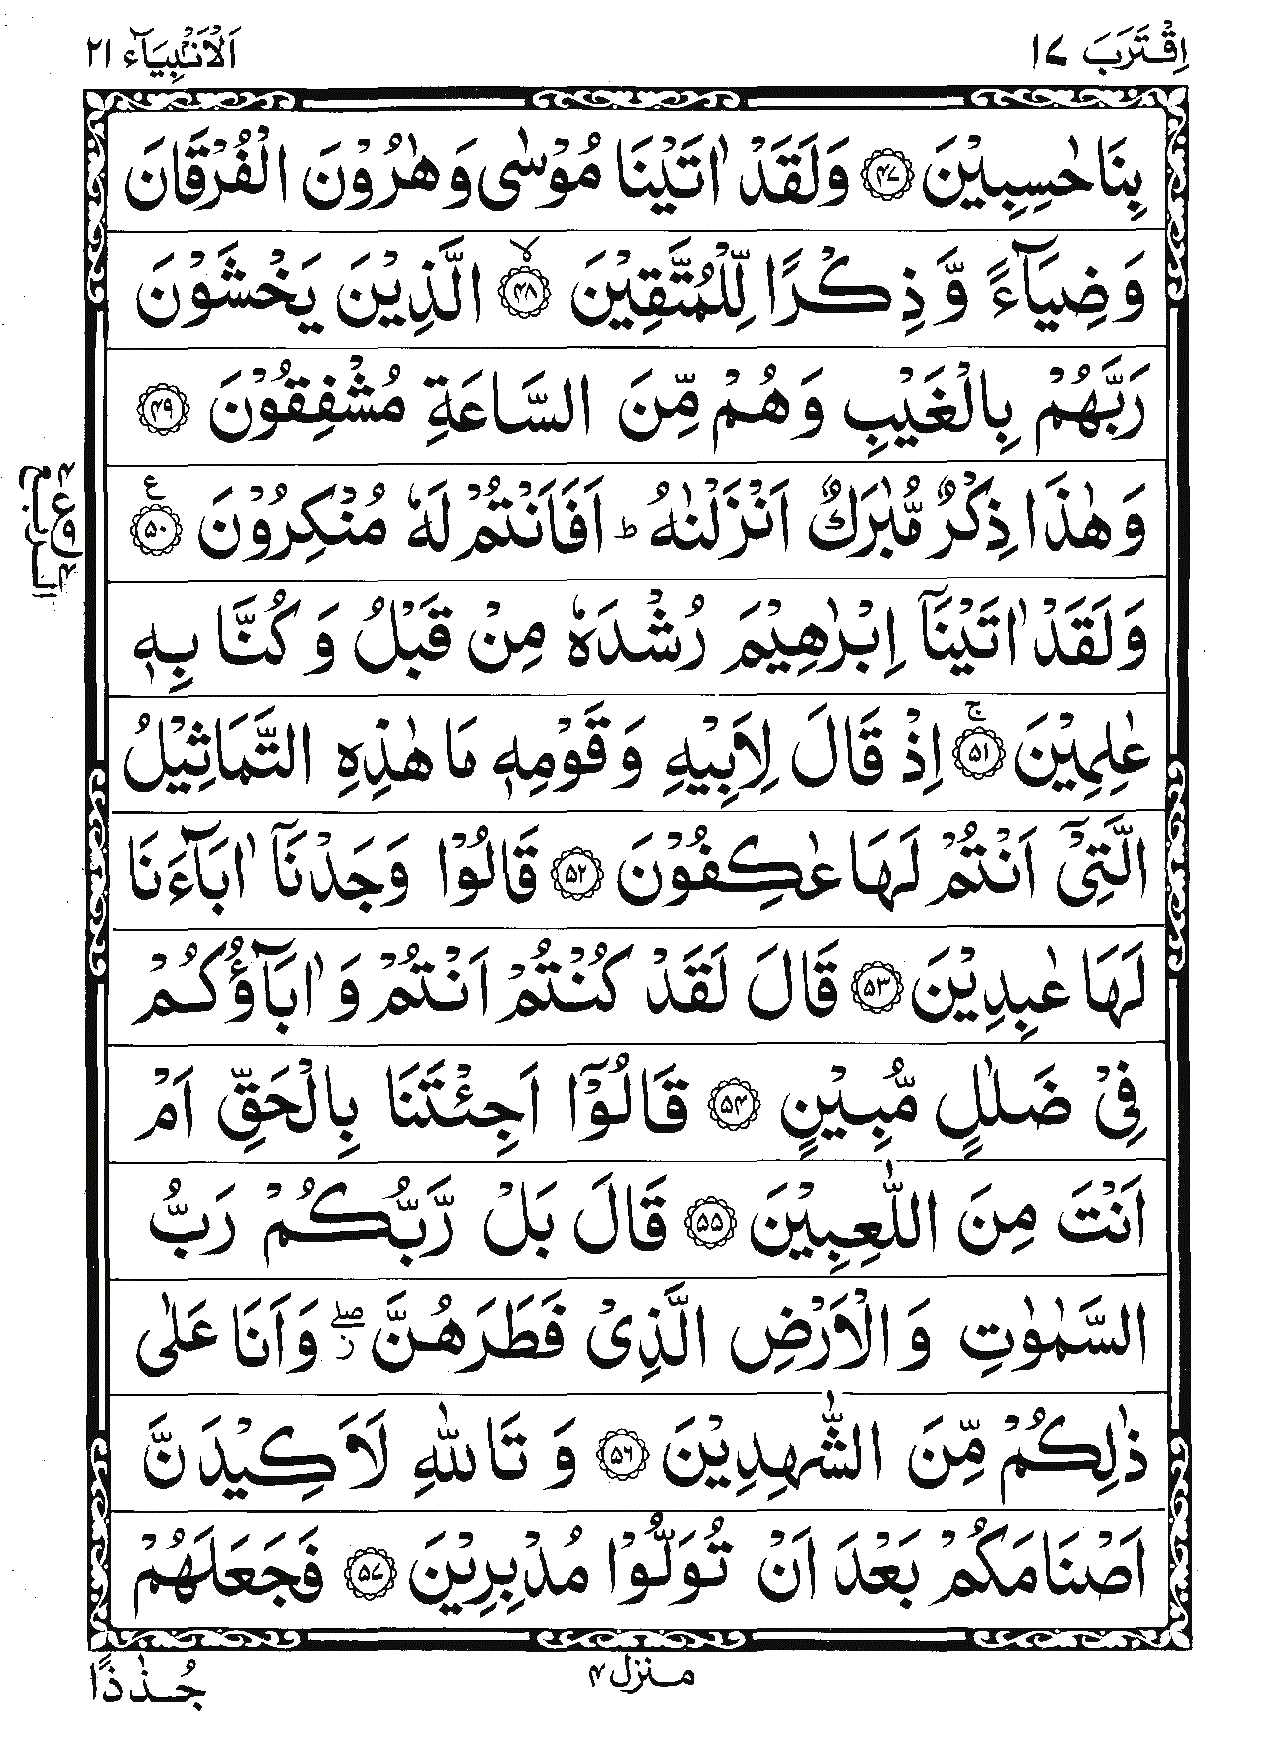 اِقْتَرَبَ ١٧
اَلْاَنْۢبِيَآء ٢١
بِنَا حٰسِبِيْنَ ﴿۴۷﴾ وَلَقَدْ اٰتَيْنَا مُوْسٰى وَهٰرُوْنَ الْفُرْقَانَ
وَضِيَآءً وَّ ذِكْرًا لِّلْمُتَّقِيْنَ ﴿۴۸﴾ۙ الَّذِيْنَ يَخْشَوْنَ
رَبَّهُمْ بِالْغَيْبِ وَهُمْ مِّنَ السَّاعَةِ مُشْفِقُوْنَ ﴿۴۹﴾
وَهٰذَا ذِكْرٌ مُّبٰرَكٌ اَنْزَلْنٰهُ ؕ اَفَاَنْتُمْ لَهٗ مُنْكِرُوْنَ ﴿۵۰﴾ ع
وَلَقَدْ اٰتَيْنَآ اِبْرٰهِيْمَ رُشْدَهٗ مِنْ قَبْلُ وَ كُنَّا بِهٖ
عٰلِمِيْنَ ﴿۵۱﴾ۚ اِذْ قَالَ لِاَبِيْهِ وَ قَوْمِهٖ مَا هٰذِهِ التَّمَاثِيْلُ
الَّتِيْٓ اَنْتُمْ لَهَا عٰكِفُوْنَ ﴿۵۲﴾ قَالُوْا وَجَدْنَآ اٰبَآءَنَا
لَهَا عٰبِدِيْنَ ﴿۵۳﴾ قَالَ لَقَدْ كُنْتُمْ اَنْتُمْ وَ اٰبَآؤُكُمْ
فِيْ ضَلٰلٍ مُّبِيْنٍ ﴿۵۴﴾ قَالُوْٓا اَجِئْتَنَا بِالْحَقِّ اَمْ
اَنْتَ مِنَ اللّٰعِبِيْنَ ﴿۵۵﴾ قَالَ بَلْ رَّبُّكُمْ رَبُّ
السَّمٰوٰتِ وَ الْاَرْضِ الَّذِيْ فَطَرَهُنَّ ۖز وَ اَنَا عَلٰى
ذٰلِكُمْ مِّنَ الشّٰهِدِيْنَ ﴿۵۶﴾ وَ تَاللّٰهِ لَاَكِيْدَنَّ
اَصْنَامَكُمْ بَعْدَ اَنْ تُوَلُّوْا مُدْبِرِيْنَ ﴿۵۷﴾ فَجَعَلَهُمْ
منزل ۴
جُذٰذًا